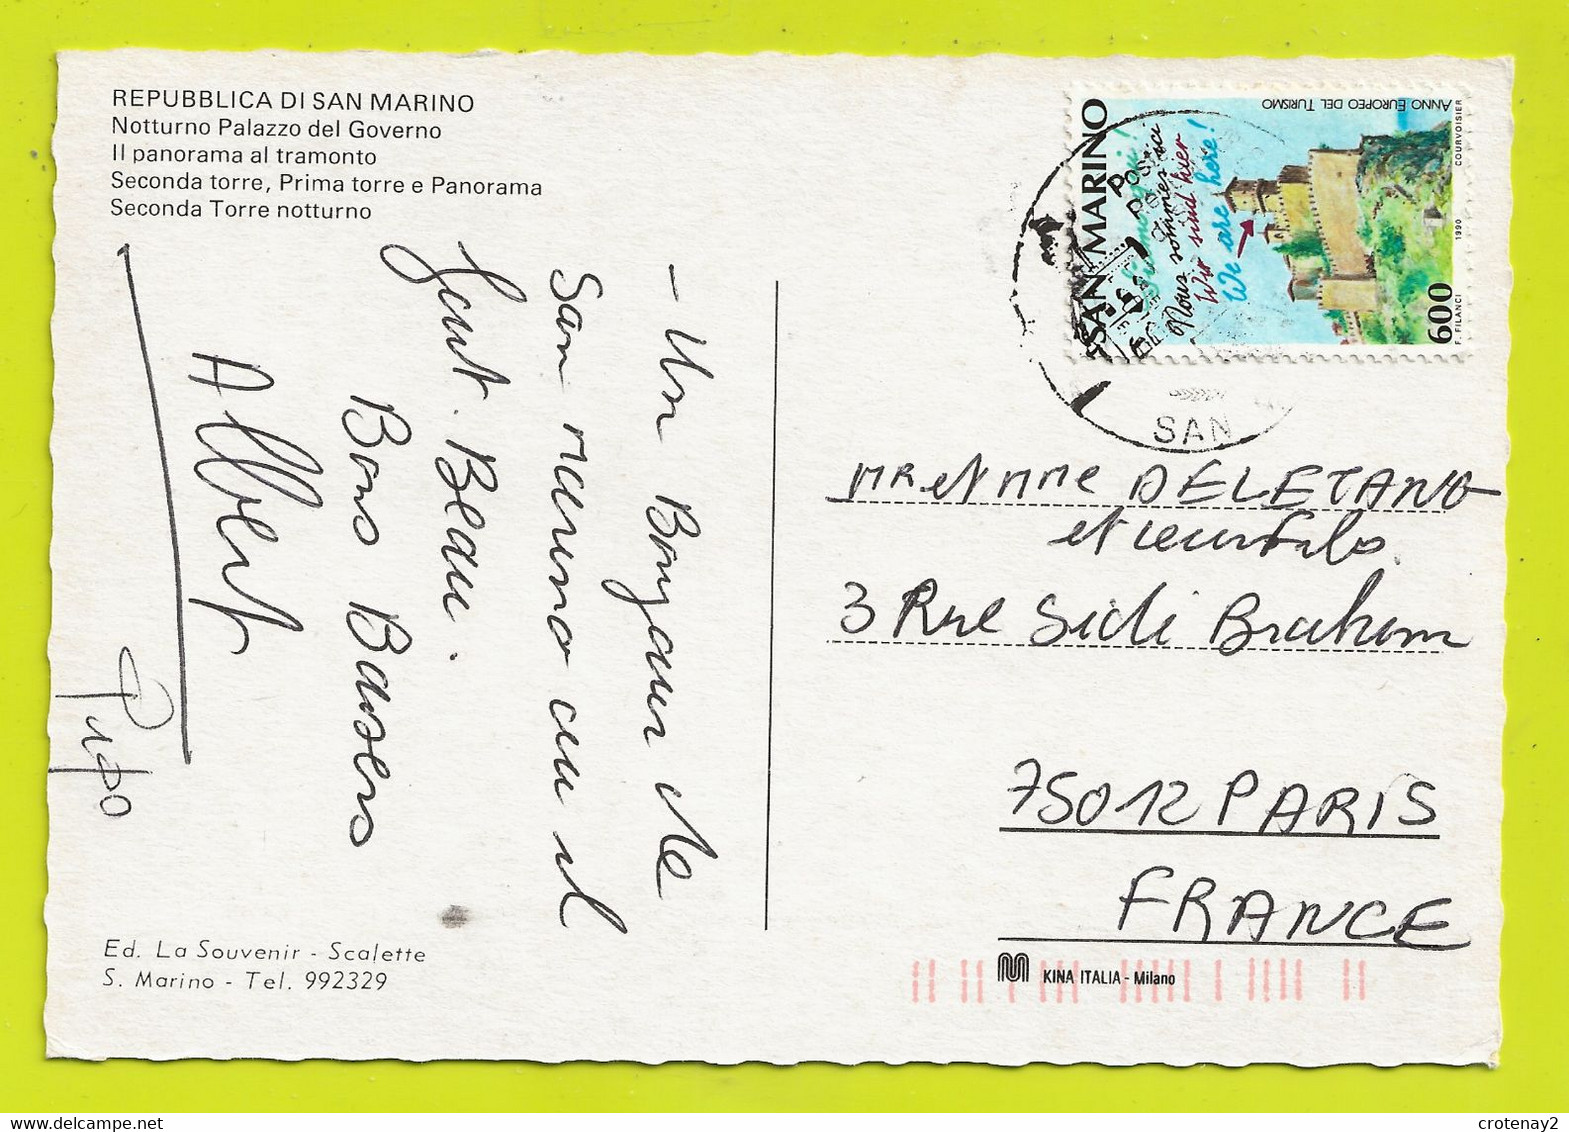 REPUBBLICA DI SAN MARINO
Notturno Palazzo del Governo
Il panorama al tramonto
Seconda torre, Prima torre e Panorama
Seconda Torre notturno
- Un Bonjour de
San Marino ou il
fait Beau.
Bons Baisers
Albert
Pipo
Ed. La Souvenir - Scalette
S. Marino - Tel. 992329
SAN MARINO
Siamo qui!
Nous sommes ici
Wir sind hier
We are here!
ANNO EUROPEO DEL TURISMO
600
F. FILANCI 1990 COURVOISIER
SAN
Mr et Mme DELETANG
et
3 Rue Sidi Brahim
75012 PARIS
FRANCE
KINA ITALIA - Milano
www.delcampe.net
crotenay2